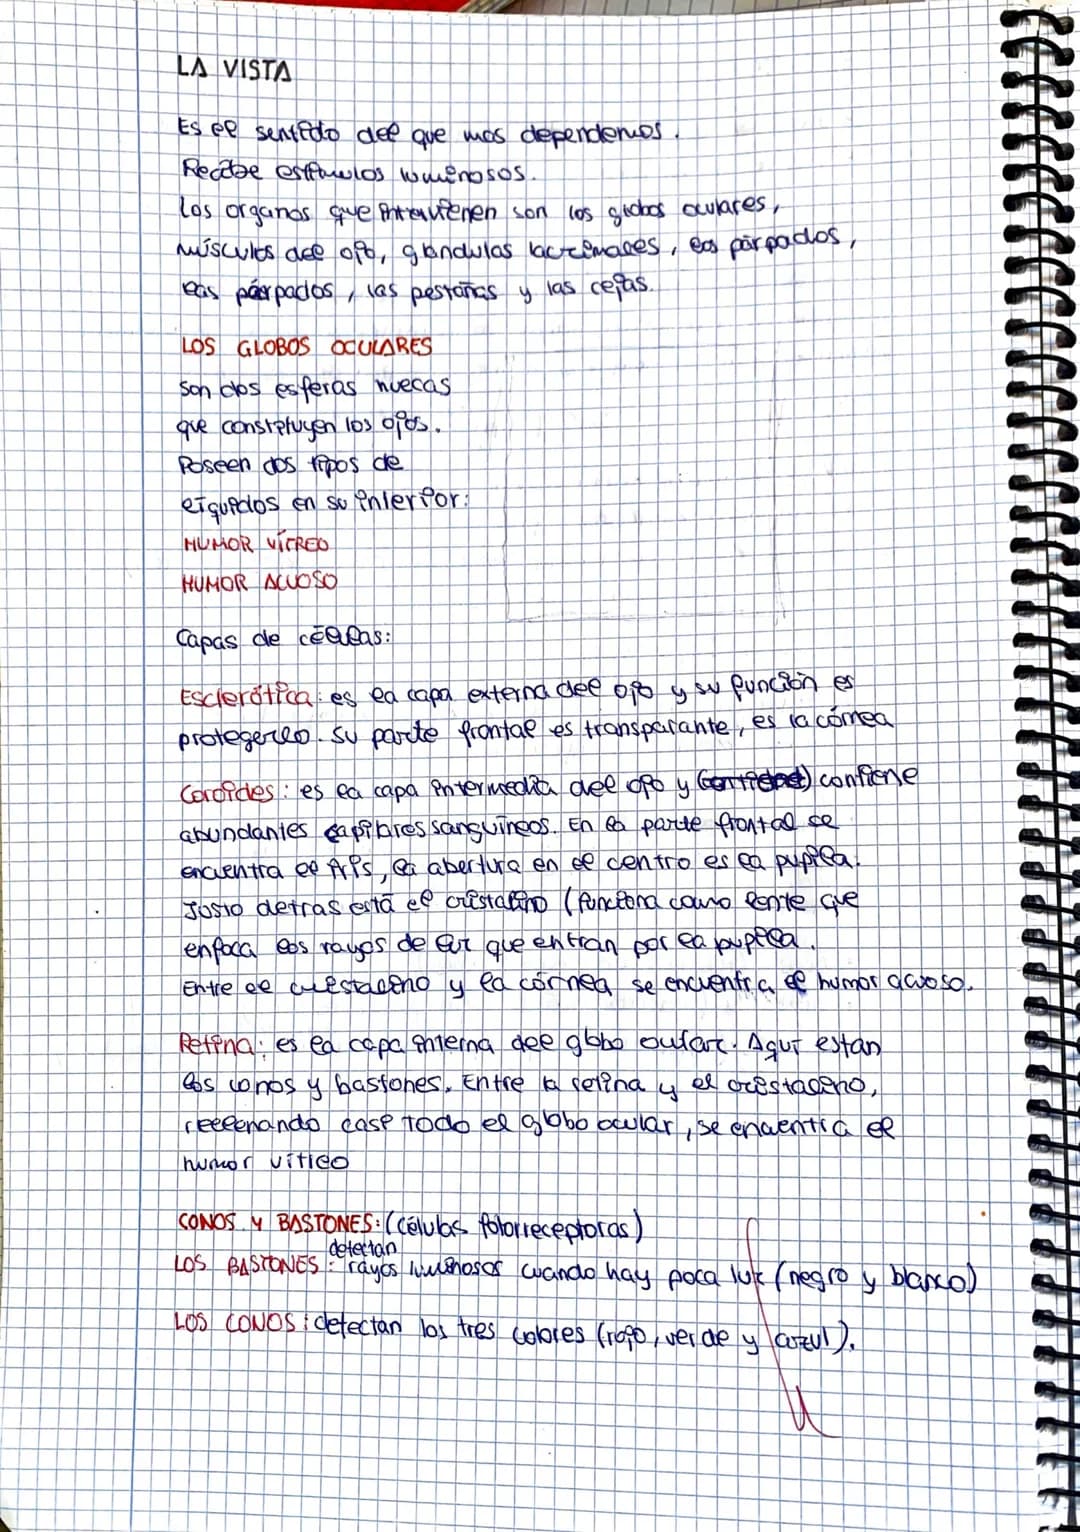 LA VISTA
Es el sentido del que mas dependemos.
Recibe estímulos luminosos.
Los organos que intervienen son los globos oculares,
músculos del ojo, glandulas lacrimales, los párpados,
las párpados, las pestañas y las cejas.
LOS GLOBOS OCULARES
Son dos esferas huecas
que constituyen los ojos.
Poseen dos tipos de
líquidos en su interior:
HUMOR VÍTREO
HUMOR ACUOSO
Capas de células:
Esclerótica: es la capa externa del ojo y su función es
protegerlo. Su parte frontal es transparante, es la córnea
Coroides: es la capa intermedia del ojo y contiene
abundantes capilares sanguíneos. En la parte frontal se
encuentra el iris, la abertura en el centro es la pupila.
Justo detras está el cristalino (funciona como lente que
enfoca los rayos de luz que entran por la pupila.
Entre el cristalino y la córnea se encuentra el humor acuoso.
Retina: es la capa interna del globo oular. Aquí estan
los conos y bastones. Entre la retina y el cristalino,
rellenando casi todo el globo ocular, se encuentra el
humor vítreo
CONOS Y BASTONES: (células fotorreceptoras)
LOS BASTONES: detectan rayos luminosos cuando hay poca luz (negro y blanco)
LOS CONOS: detectan los tres colores (rojo, verde y azul).